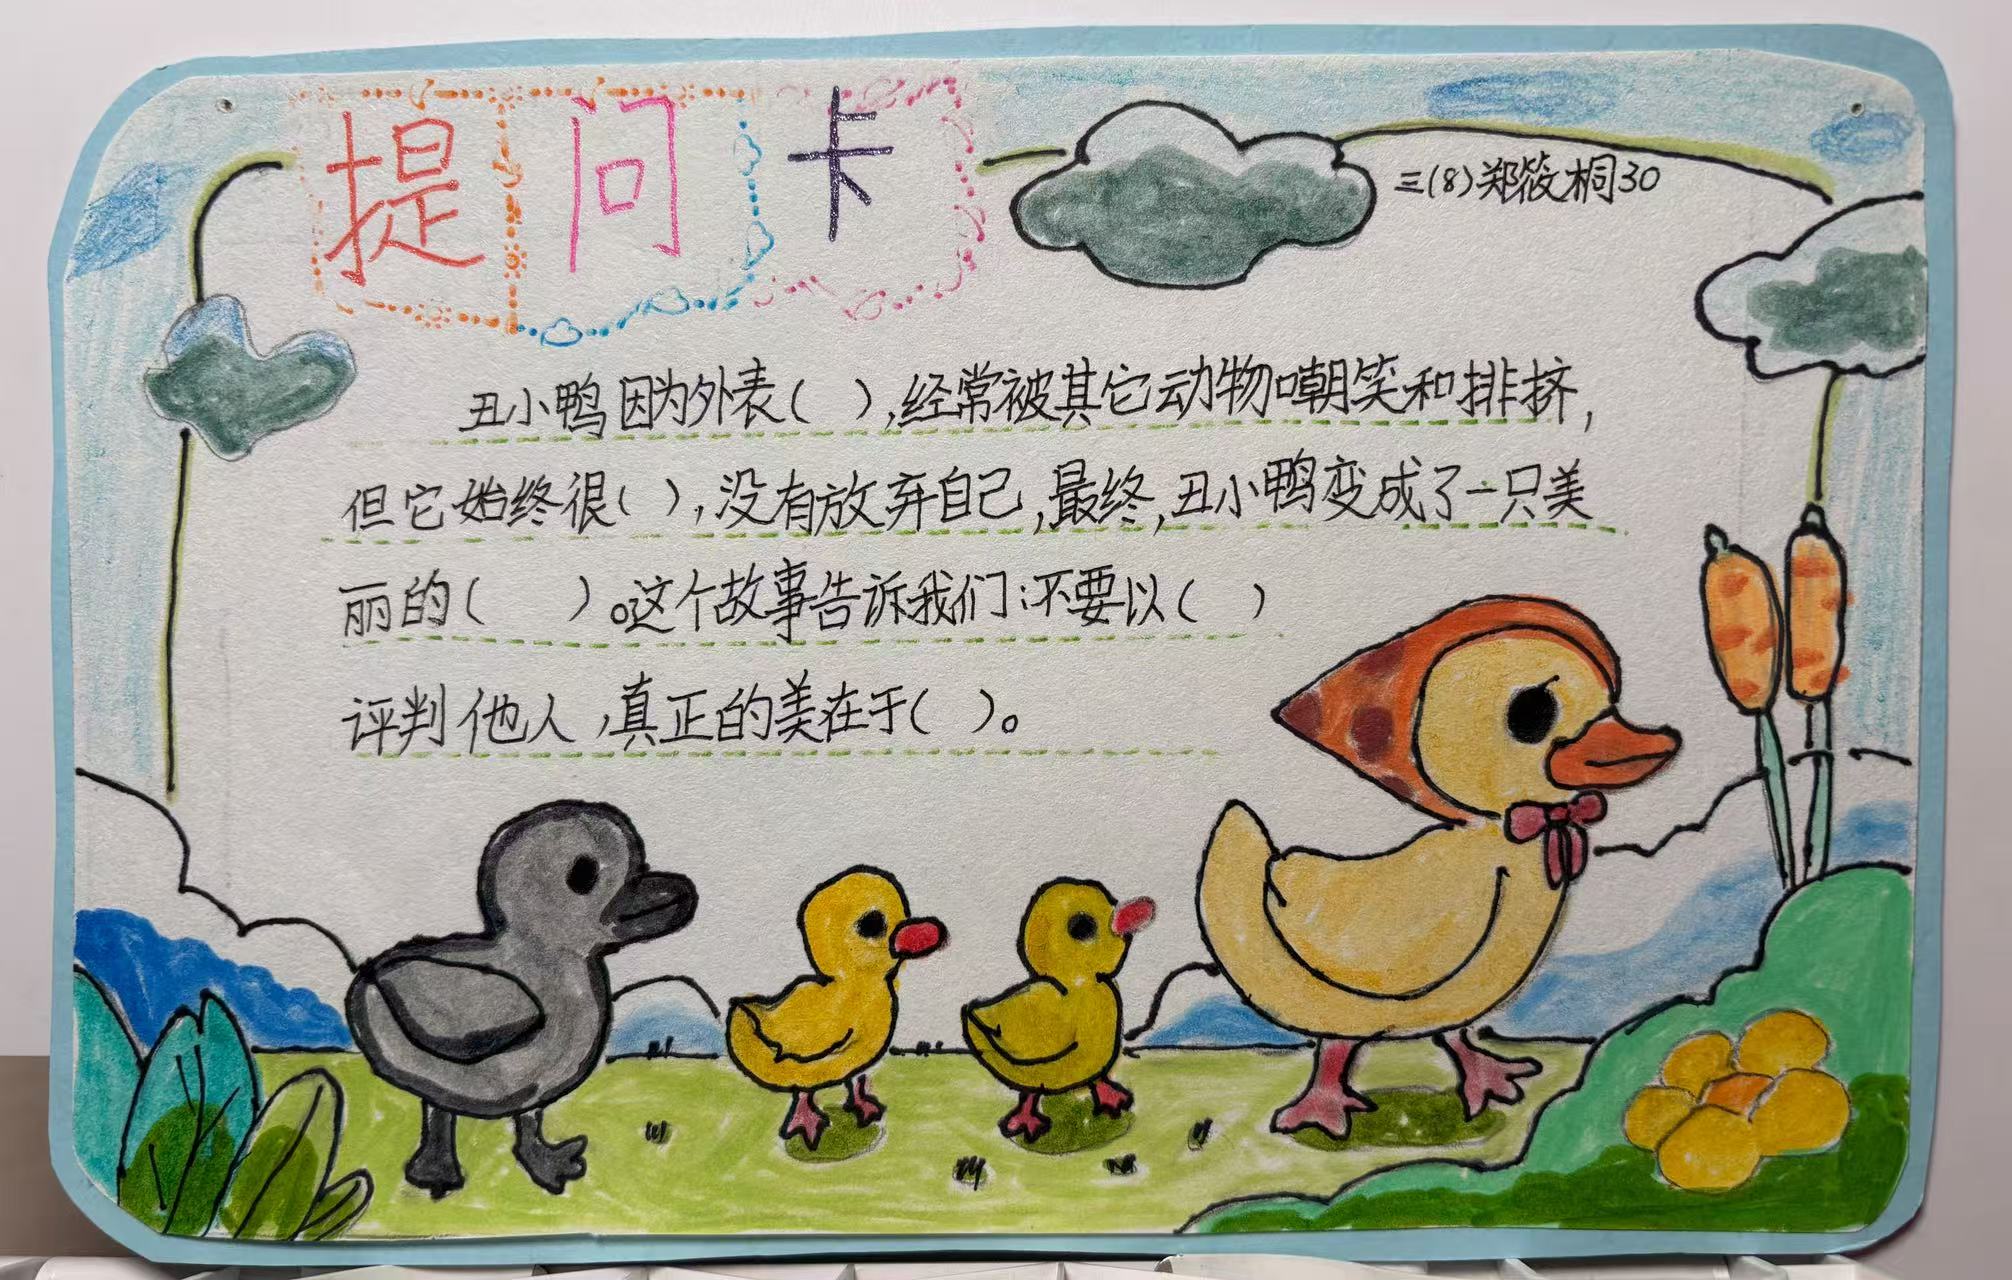 提问卡
三(8)郑筱桐30
丑小鸭因为外表(  ),经常被其它动物嘲笑和排挤,
但它始终很(  ),没有放弃自己,最终,丑小鸭变成了一只美
丽的(    )。这个故事告诉我们:不要以(  )
评判他人,真正的美在于(  )。